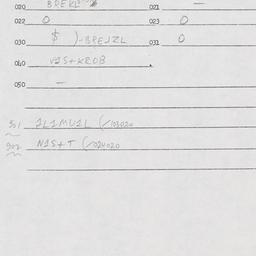 020 BREKL 021 —
022 0 023 0
030 $ )-BREJZL 031 0
040 V2S+KROB .
050 —
901 2L1MU1L (/103020
902 N1S+T (/024020